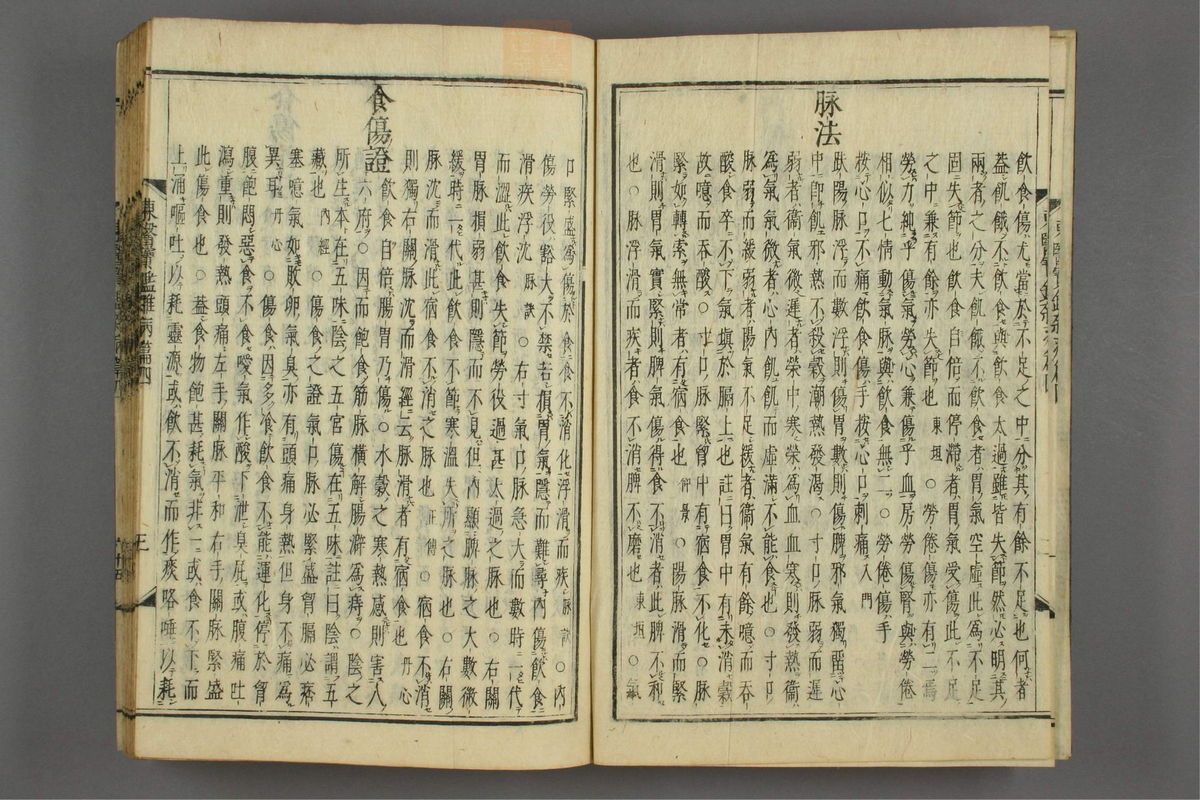 飲食傷尤當於不足之中分其有餘不足也何者
蓋飢餓不飲食與飲食太過雖皆失節然必明其
兩者之分夫飢餓不飲食者胃氣空虛此爲不足
固失節也飲食自倍而停滯者胃氣受傷此不足
之中兼有餘亦失節也東垣○勞倦傷亦有二焉
勞力純乎傷氣勞心兼傷乎血房勞傷腎與勞倦
相似七情動氣脉與飲食無二○勞倦傷手
按心口不痛飲食傷手按心口刺痛入門
脉法
趺陽脉浮而數浮則傷胃數則傷脾邪氣獨留心
中卽飢邪熱不殺穀潮熱發渴○寸口脉弱而遲
弱者衞氣微遲者榮中寒榮爲血血寒則發熱衞
爲氣氣微者心內飢飢而虛滿不能食也○寸口
脉弱而緩弱者陽氣不足緩者衞氣有餘噫而吞
酸食卒不下氣塡於膈上也註曰胃中有未消穀
故噫而吞酸○寸口脉緊胷中有宿食不化○脉
緊如轉索無常者有宿食也仲景○陽脉滑而緊
滑則胃氣實緊則脾氣傷得食不消者此脾不和
也○脉浮滑而疾者食不消脾不磨也東垣○氣
口緊盛爲傷於食食不消化浮滑而疾脉訣○內
傷勞役豁大不禁若損胃氣隱而難尋內傷飲食
滑疾浮沈脉訣○右寸氣口脉急大而數時一代
而澀此飲食失節勞役過甚太過之脉也○右關
胃脉損弱甚則隱而不見但內顯脾脉之大數微
緩時一代此飲食不節寒溫失所之脉也○右關
脉沈而滑此宿食不消之脉也正傳○宿食不消
則獨右關脉沈而滑經云脉滑者有宿食也丹心
食傷證
飲食自倍腸胃乃傷○水穀之寒熱感則害人
六府○因而飽食筋脉橫解腸澼爲痔○陰之
所生本在五味陰之五宮傷在五味註曰陰謂五
藏也內經○傷食之證氣口脉必緊盛胷膈必痞
塞噫氣如敗卵氣臭亦有頭痛身熱但身不痛爲
異耳丹心○傷食因多冷飲食不能運化停於胷
腹飽悶惡食不食噯氣作酸下泄臭屁或腹痛吐
瀉重則發熱頭痛左手關脉平和右手關脉緊盛
此傷食也○蓋食物飽甚耗氣非一或食不下而
上涌嘔吐以耗靈源或飲不消而作痰咯唾以耗
東醫寶鑑雜病篇四